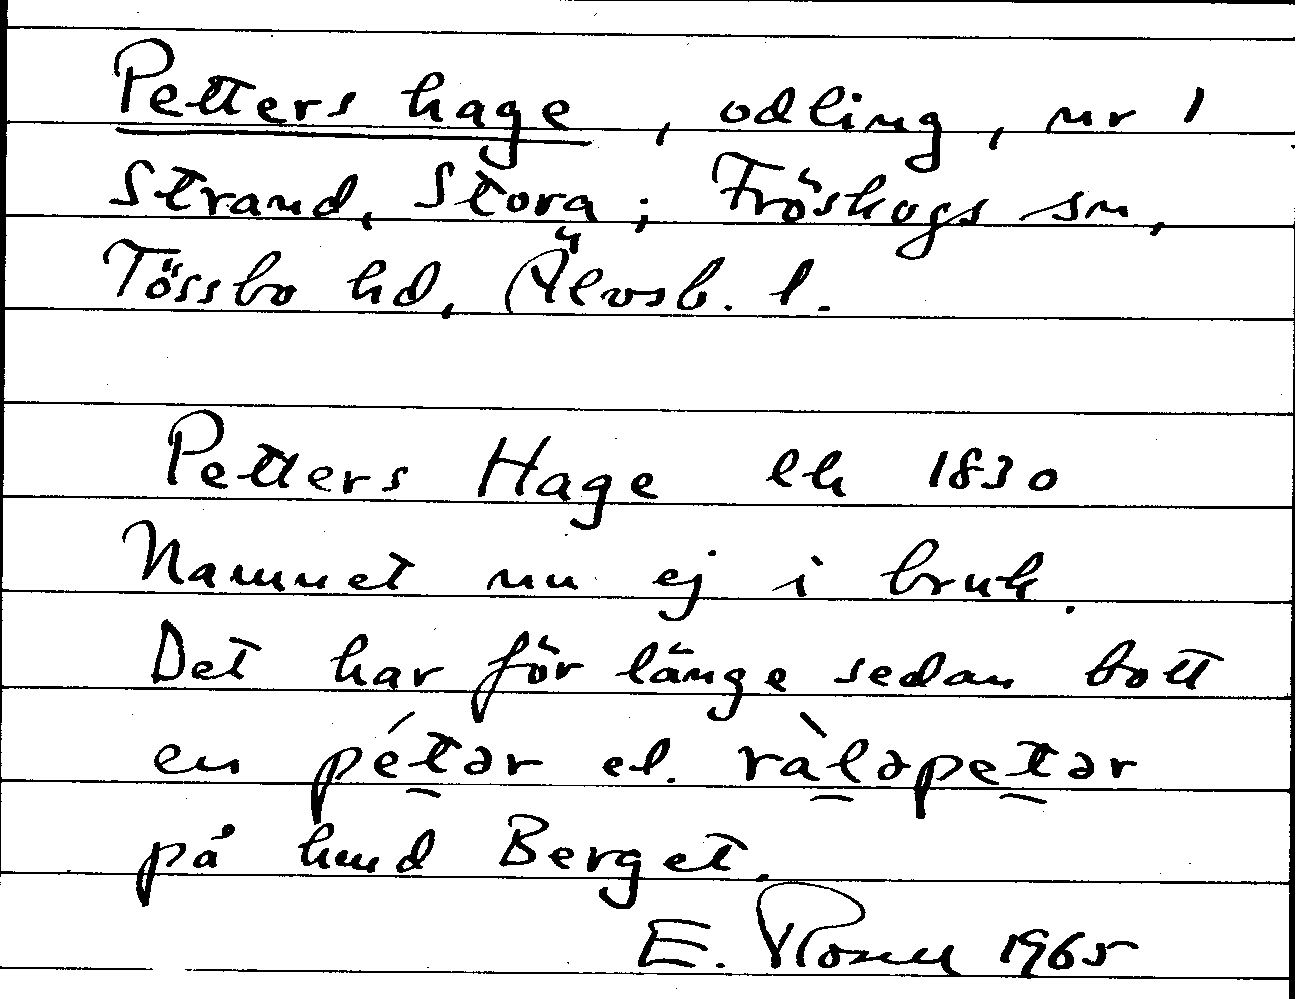 Petters hage, odling, nr 1
Strand, Stora; Fröskogs sn,
Tössbo hd, Älvsb. l.
Petters Hage lk 1830
Namnet nu ej i bruk.
Det har för länge sedan bott
en pétər el. ràləpetər
på hmd Berget.
E. 1965